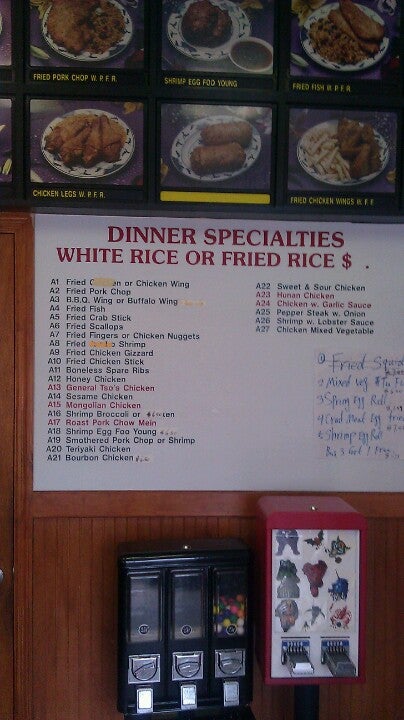 FRIED PORK CHOP W. P. F. R.
SHRIMP EGG FOO YOUNG
FRIED FISH W. P. F. R.
CHICKEN LEGS W. P. F. R.
FRIED CHICKEN WINGS W. F. F.
DINNER SPECIALTIES
WHITE RICE OR FRIED RICE $
A1 Fried or Chicken Wing
A2 Fried Pork Chop
A3 B.B.Q. Wing or Buffalo Wing
A4 Fried Fish
A5 Fried Crab Stick
A6 Fried Scallops
A7 Fried Fingers or Chicken Nuggets
A8 Fried Shrimp
A9 Fried Chicken Gizzard
A10 Fried Chicken Stick
A11 Boneless Spare Ribs
A12 Honey Chicken
A13 General Tso's Chicken
A14 Sesame Chicken
A15 Mongolian Chicken
A16 Shrimp Broccoli or
A17 Roast Pork Chow Mein
A18 Shrimp Egg Foo Young
A19 Smothered Pork Chop or Shrimp
A20 Teriyaki Chicken
A21 Bourbon Chicken
A22 Sweet & Sour Chicken
A23 Hunan Chicken
A24 Chicken w. Garlic Sauce
A25 Pepper Steak w. Onion
A26 Shrimp w. Lobster Sauce
A27 Chicken Mixed Vegetable
Fried
Mixed
Egg Roll
Egg
Shrimp Egg Roll
Buy 3 Get 1 Free